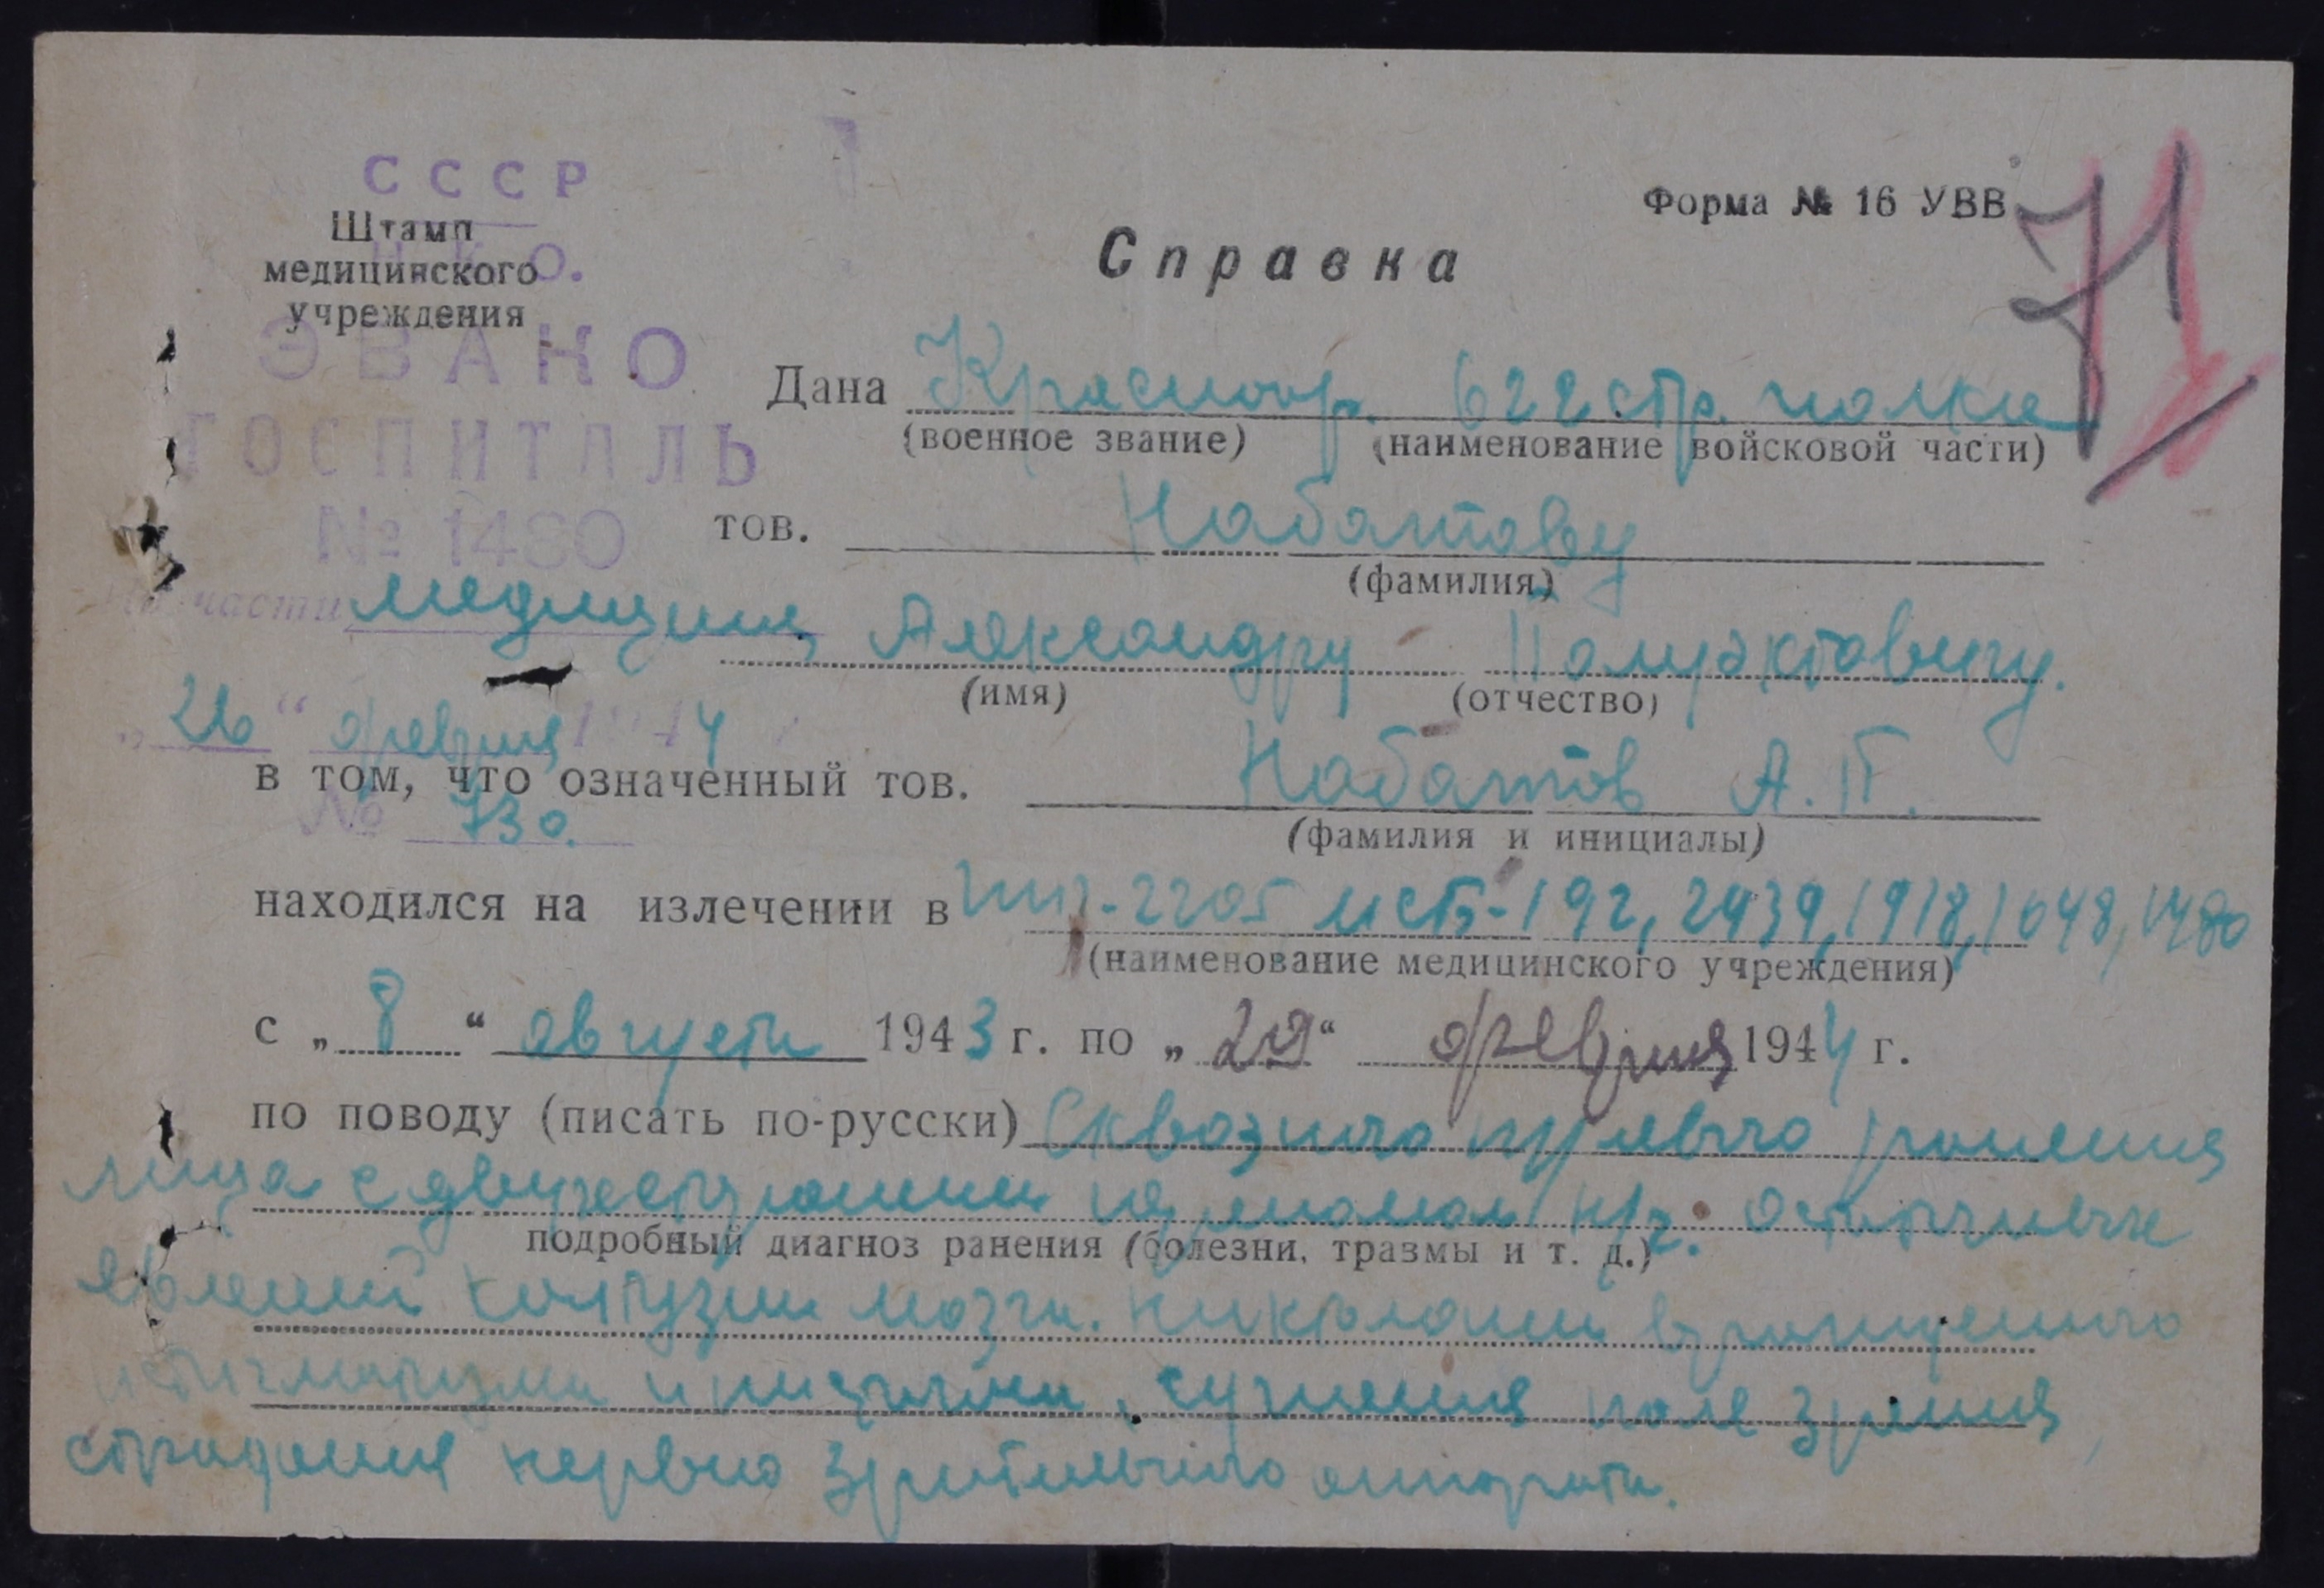 СССР
Форма № 16 УВВ
71
Штамп
Н.К.О.
медицинского
учреждения
Справка
ЭВАКО
ГОСПИТАЛЬ
№ 1480
Дана Красноар. 622 стр. полка
(военное звание) (наименование войсковой части)
тов. Набатову
(фамилия)
части медицин Александру
(имя) (отчество)
„26“ февраля 1944
в том, что означенный тов. Набатов А. П.
№ 730.
(фамилия и инициалы)
находился на излечении в ППГ-2205 мсб-192, 2439, 1918, 1648, 1480
(наименование медицинского учреждения)
с „8“ августа 1943 г. по „29“ февраля 1944 г.
по поводу (писать по-русски) Сквозного пулевого ранения
лица с двухсторонним н/ч. остаточных
подробный диагноз ранения (болезни, травмы и т. д.)
явлений контузии мозга. врожденного
астигматизма и сужения поля зрения,
страдания нервно зрительного аппарата.